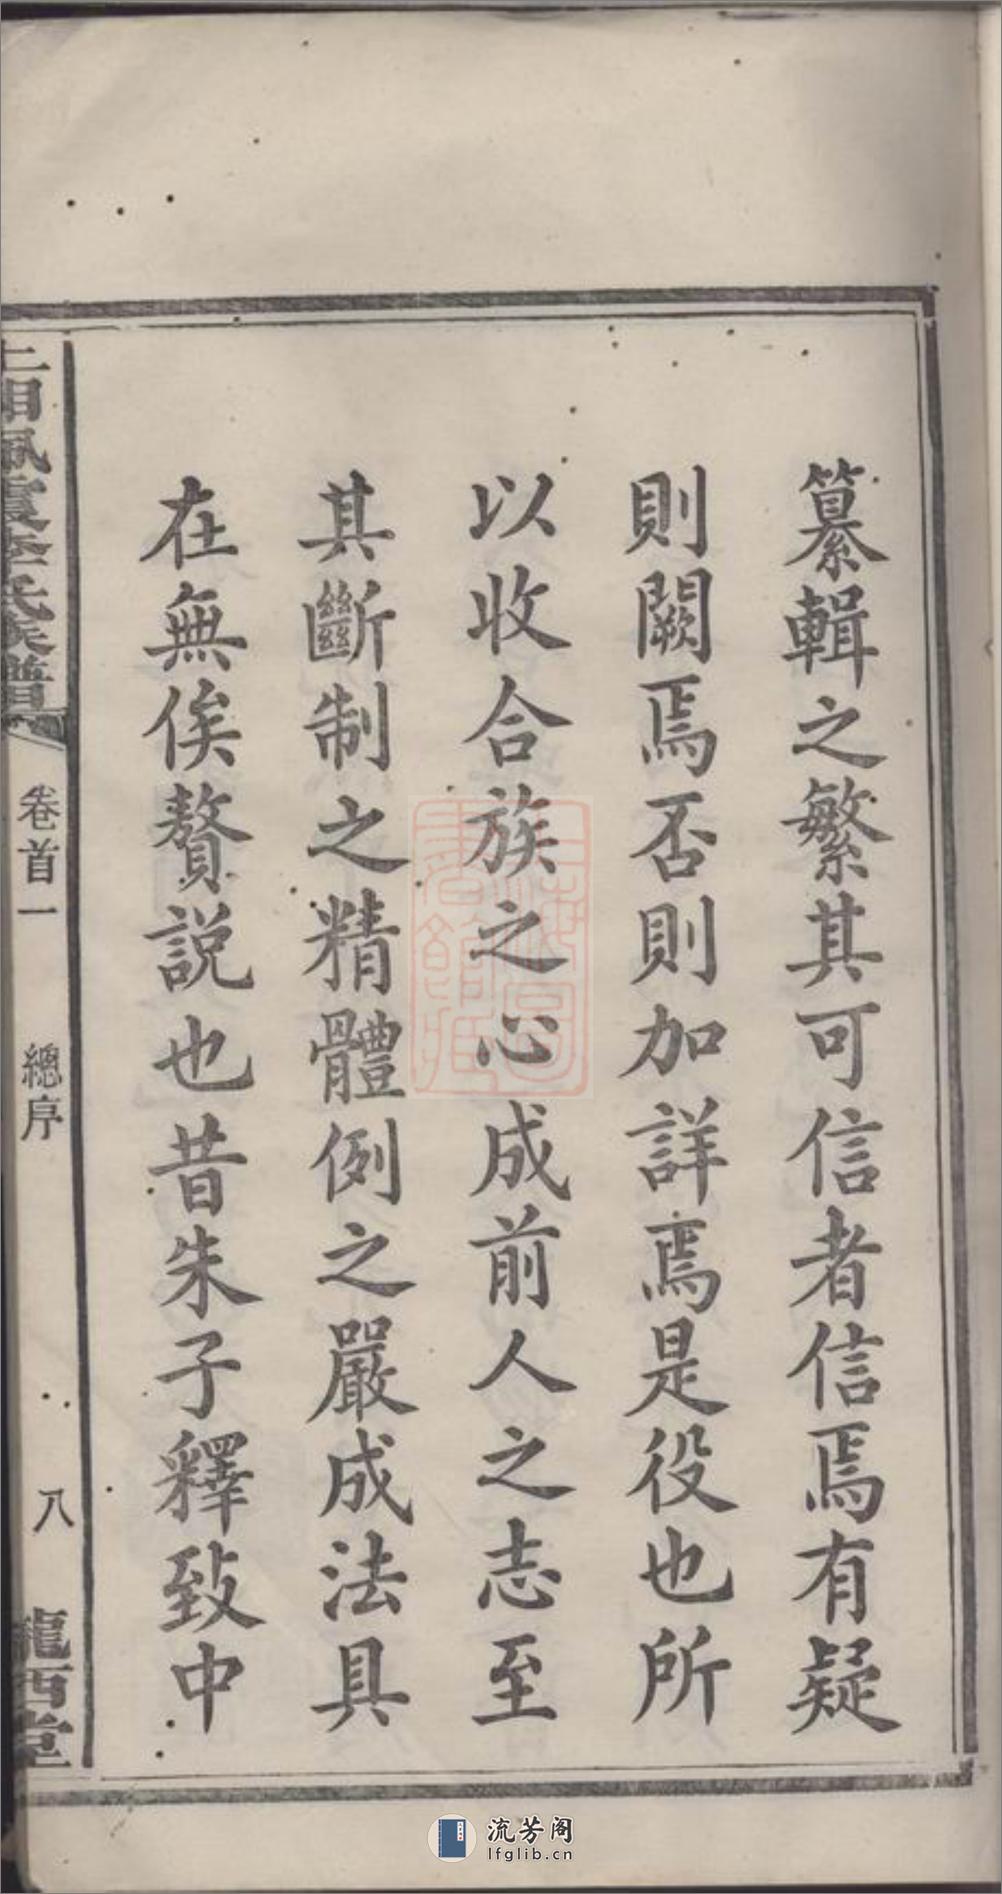 纂輯之繁其可信者信焉有疑
則闕焉否則加詳焉是役也所
以收合族之心成前人之志至
其斷制之精體例之嚴成法具
在無俟贅說也昔朱子釋致中
李氏族譜
卷首一
總序
八
隴西堂
流芳阁
lfglib.cn